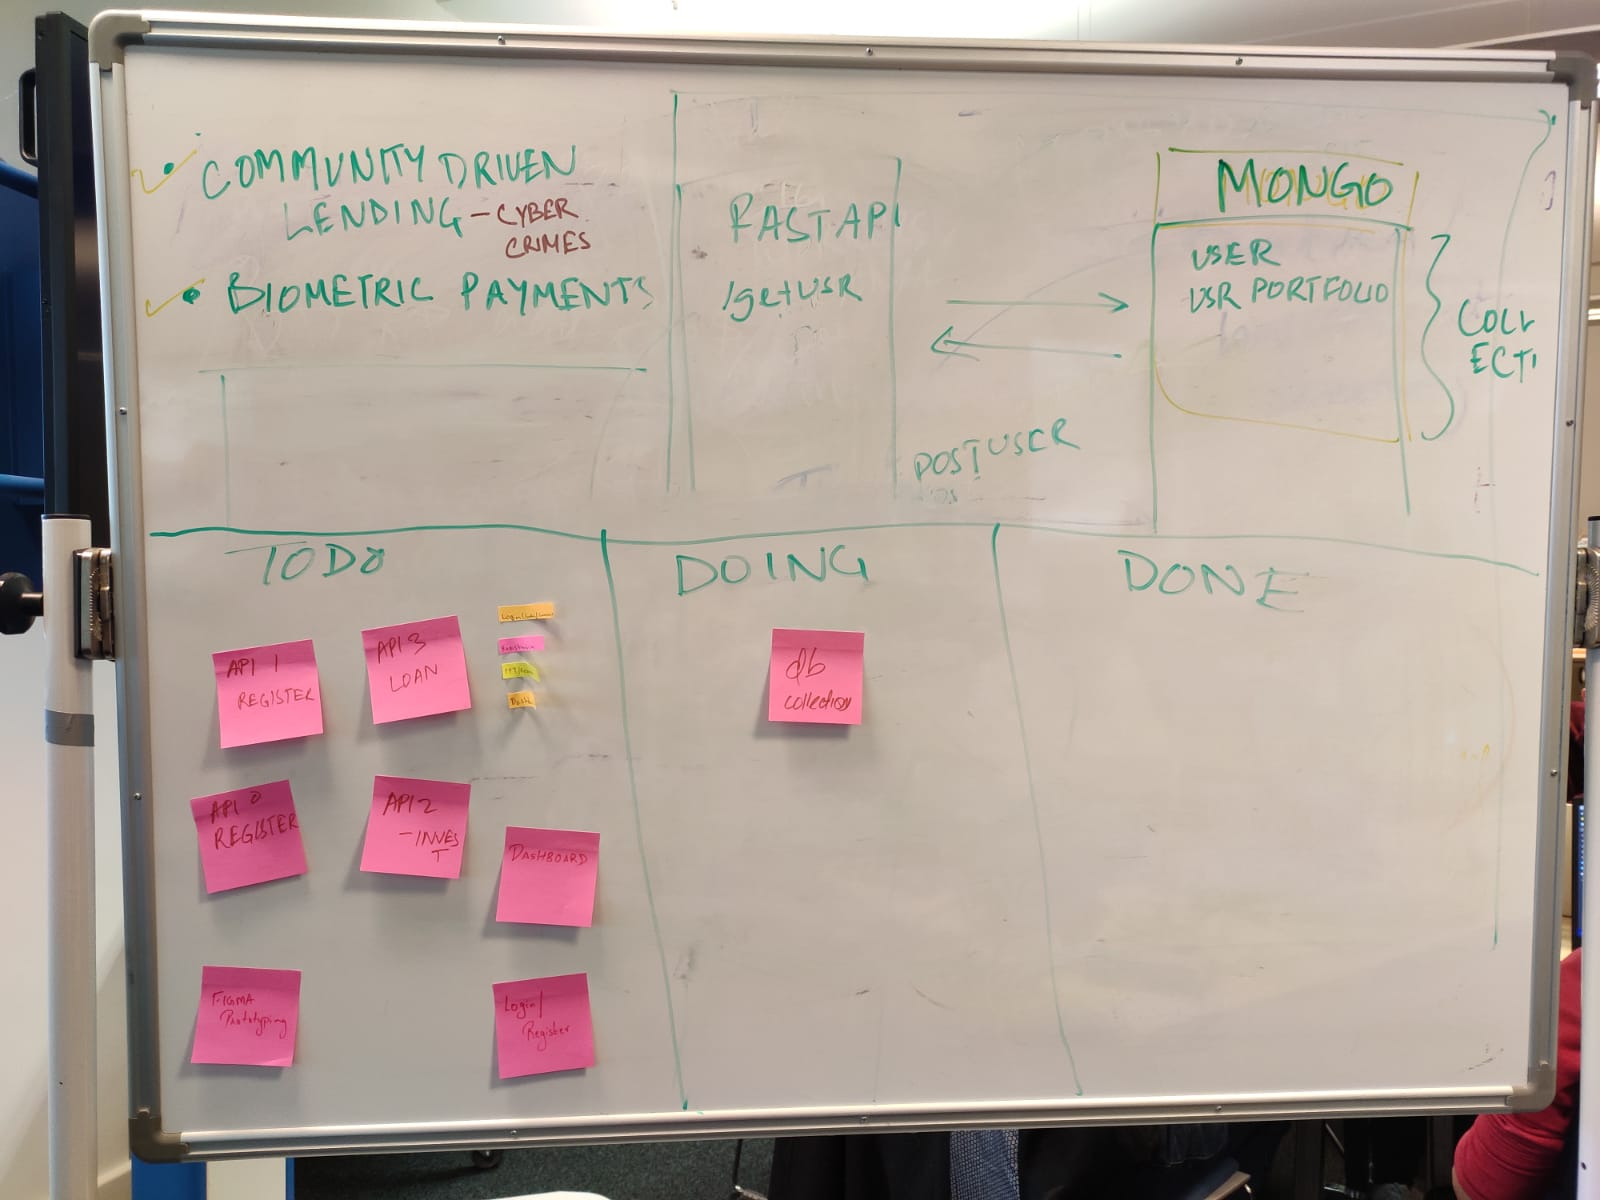 • COMMUNITY DRIVEN
LENDING - CYBER
CRIMES
• BIOMETRIC PAYMENTS
FAST API
/getUSR
POST USER
MONGO
USER
USR PORTFOLIO
COLL
ECTI
TODO
DOING
DONE
API 1
REGISTER
API 3
LOAN
API 0
REGISTER
API 2
- INVES
T
DASHBOARD
FIGMA
Prototyping
Login/
Register
db
collection